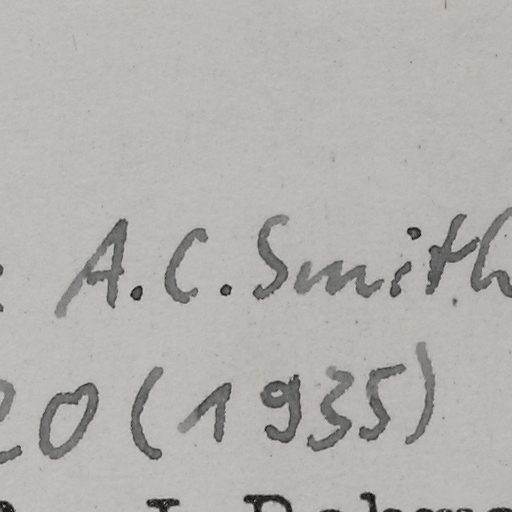 : A.C. Smith
20 (1935)